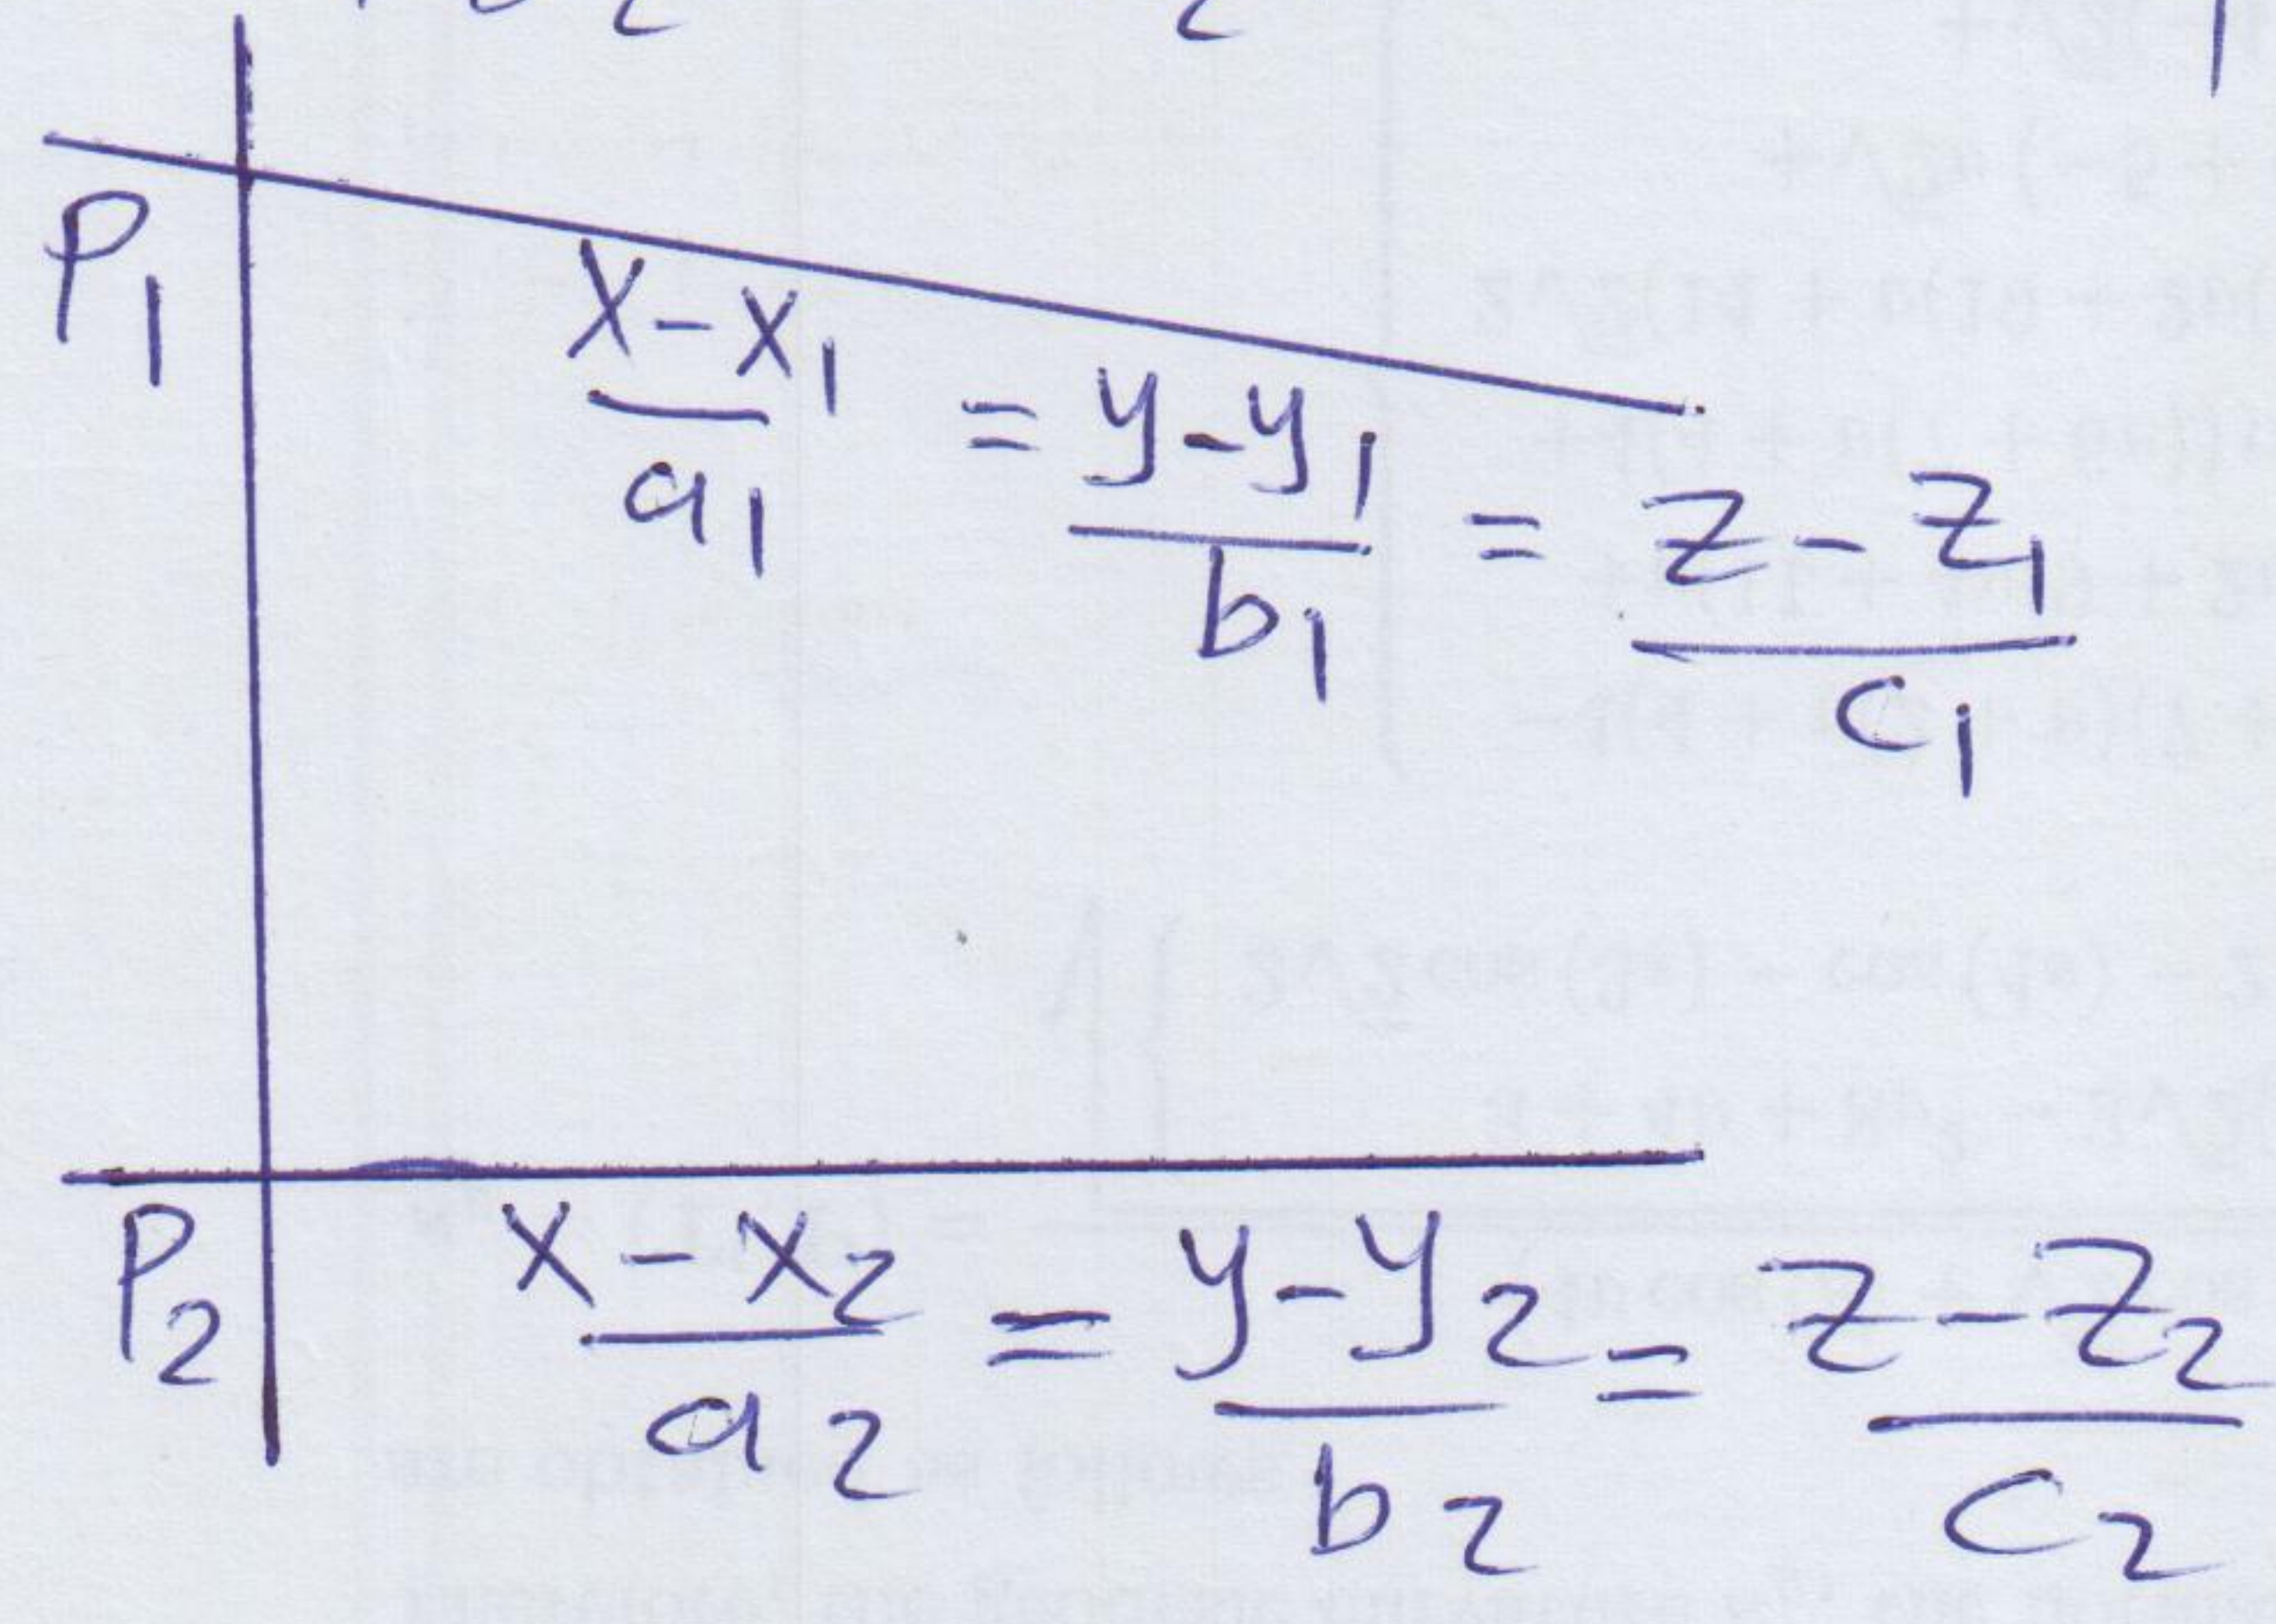 P₁
(x - x₁)/a₁ = (y - y₁)/b₁ = (z - z₁)/c₁
P₂
(x - x₂)/a₂ = (y - y₂)/b₂ = (z - z₂)/c₂